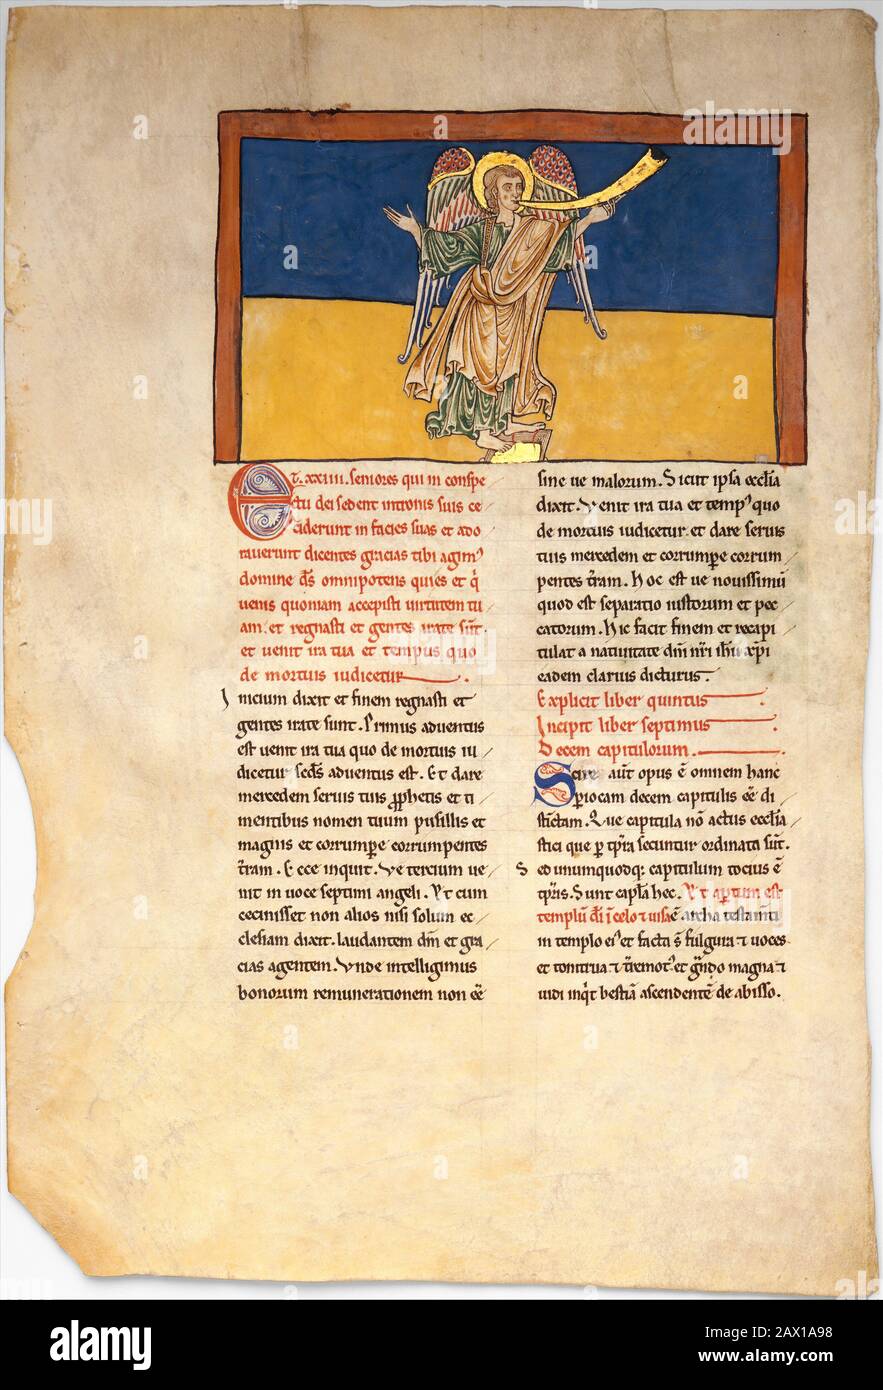 Et. xxiiii. seniores qui in conspe
ctu dei sedent in tronis suis ce
ciderunt in facies suas et ado
raverunt dicentes gracias tibi agimꝰ
domine d̅s omnipotens qui es et q̇
venis quoniam accepisti virtutem tu
am. et regnasti et gentes irate su̅t.
et venit ira tua et tempus quo
de mortuis iudicetur.
Inicium dixit et finem regnasti et
gentes irate sunt. Primus adventus
est venit ira tua quo de mortuis iu
dicetur sed̅s adventus est. Et dare
mercedem servis tuis ꝓphetis et ti
mentibus nomen tuum pusillis et
magnis et corrumpe̅ corrumpentes
t̅ram. Ecce inquit. Ve tercium ve
nit in voce septimi angeli. Vt cum
cecinisset non alios nisi solum ec
clesiam dixit. laudantem d̅m et gra
cias agentem. Vnde intelligimus
bonorum remunerationem non e̅e
sine ve malorum. Sicut ipsa eccl̅ia
dixit. Venit ira tua et tempꝰ quo
de mortuis iudicetur. et dare servis
tuis mercedem et corrumpe̅ corrum
pentes t̅ram. Hoc est ve novissimu̅
quod est separatio iustorum et pec
catorum. Hic facit finem et recapi
tulat a nativitate d̅m n̅ri ih̅u xp̅i
eadem clarius dicturus.
Explicit liber quintus
Incipit liber septimus
Decem capitulorum.
Scire aut̅ opus e̅ omnem hanc
ꝑiocam decem capitulis e̅e di
sti̅ctam. Que capitula no̅ actus eccl̅ia
stici que ꝑ t̅p̅ra secuntur ordinata su̅t.
Sed unumquodq; capitulum tocius e̅
t̅p̅ris. Sunt capl̅a hec. Vt aꝑtum est
templu̅ d̅i i̅ celo ⁊ visa e̅ archa testam̅ti
in templo eiꝰ et facta s̅ fulgura ⁊ voces
et tonitrua ⁊ t̅remotꝰ et g̅ndo magna ⁊
vidi inq̇t bestia̅ ascendente̅ de abisso.
alamy
alamy
Image ID: 2AX1A98
www.alamy.com